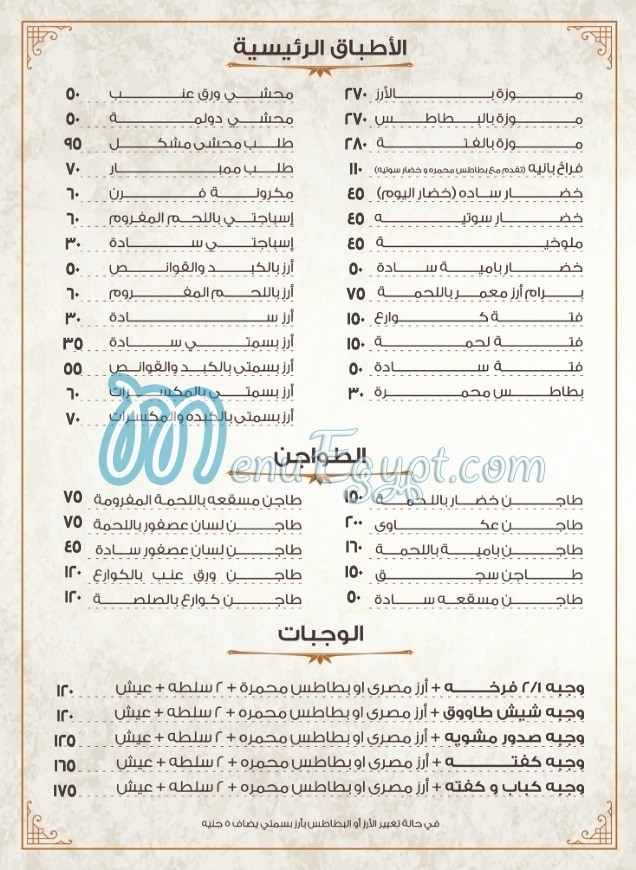 الأطباق الرئيسية
موزة بالأرز ٢٧٠
موزة بالبطاطس ٢٧٠
موزة بالفتة ٢٨٠
فراخ بانيه (تقدم مع بطاطس محمره و خضار سوتيه) ١١٠
خضار ساده (خضار اليوم) ٤٥
خضار سوتيه ٤٥
ملوخية ٤٥
خضار بامية سادة ٥٠
برام أرز معمر باللحمة ٧٥
فتة كوارع ١٥٠
فتة لحمة ١٥٠
فتة سادة ٥٠
بطاطس محمرة ٣٠
محشي ورق عنب ٥٠
محشي دولمة ٥٠
طلب محشي مشكل ٩٥
طلب ممبار ٧٠
مكرونة فرن ٦٠
إسباجتي باللحم المفروم ٦٠
إسباجتي سادة ٣٠
أرز بالكبد والقوانص ٥٠
أرز باللحم المفروم ٦٠
أرز سادة ٣٠
أرز بسمتي سادة ٣٥
أرز بسمتي بالكبد والقوانص ٥٥
أرز بسمتي بالمكسرات ٦٠
أرز بسمتي بالكبده والمكسرات ٧٠
MenuEgypt.com
الطواجن
طاجن خضار باللحمة ١٥٠
طاجن عكاوى ٢٠٠
طاجن بامية باللحمة ١٦٠
طاجن سجق ١٥٠
طاجن مسقعه سادة ٥٠
طاجن مسقعه باللحمة المفرومة ٧٥
طاجن لسان عصفور باللحمة ٧٥
طاجن لسان عصفور سادة ٤٥
طاجن ورق عنب بالكوارع ١٢٠
طاجن كوارع بالصلصة ١٢٠
الوجبات
وجبه ٢/١ فرخه + أرز مصرى او بطاطس محمرة + ٢ سلطه + عيش ١٢٠
وجبه شيش طاووق + أرز مصرى او بطاطس محمره + ٢ سلطه + عيش ١٢٠
وجبه صدور مشويه + أرز مصرى او بطاطس محمره + ٢ سلطه + عيش ١٢٥
وجبه كفته + أرز مصرى او بطاطس محمره + ٢ سلطه + عيش ١٦٥
وجبه كباب و كفته + أرز مصرى او بطاطس محمره + ٢ سلطه + عيش ١٧٥
في حالة تغيير الأرز أو البطاطس بأرز بسمتي يضاف ٥ جنيه